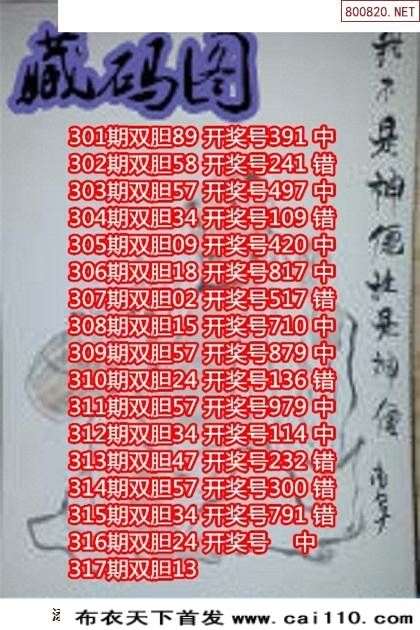 800820.NET
藏码图
我不是神仙谁是神仙
301期双胆89 开奖号391 中
302期双胆58 开奖号241 错
303期双胆57 开奖号497 中
304期双胆34 开奖号109 错
305期双胆09 开奖号420 中
306期双胆18 开奖号817 中
307期双胆02 开奖号517 错
308期双胆15 开奖号710 中
309期双胆57 开奖号879 中
310期双胆24 开奖号136 错
311期双胆57 开奖号979 中
312期双胆34 开奖号114 中
313期双胆47 开奖号232 错
314期双胆57 开奖号300 错
315期双胆34 开奖号791 错
316期双胆24 开奖号 中
317期双胆13
布衣天下首发 www.cai110.com